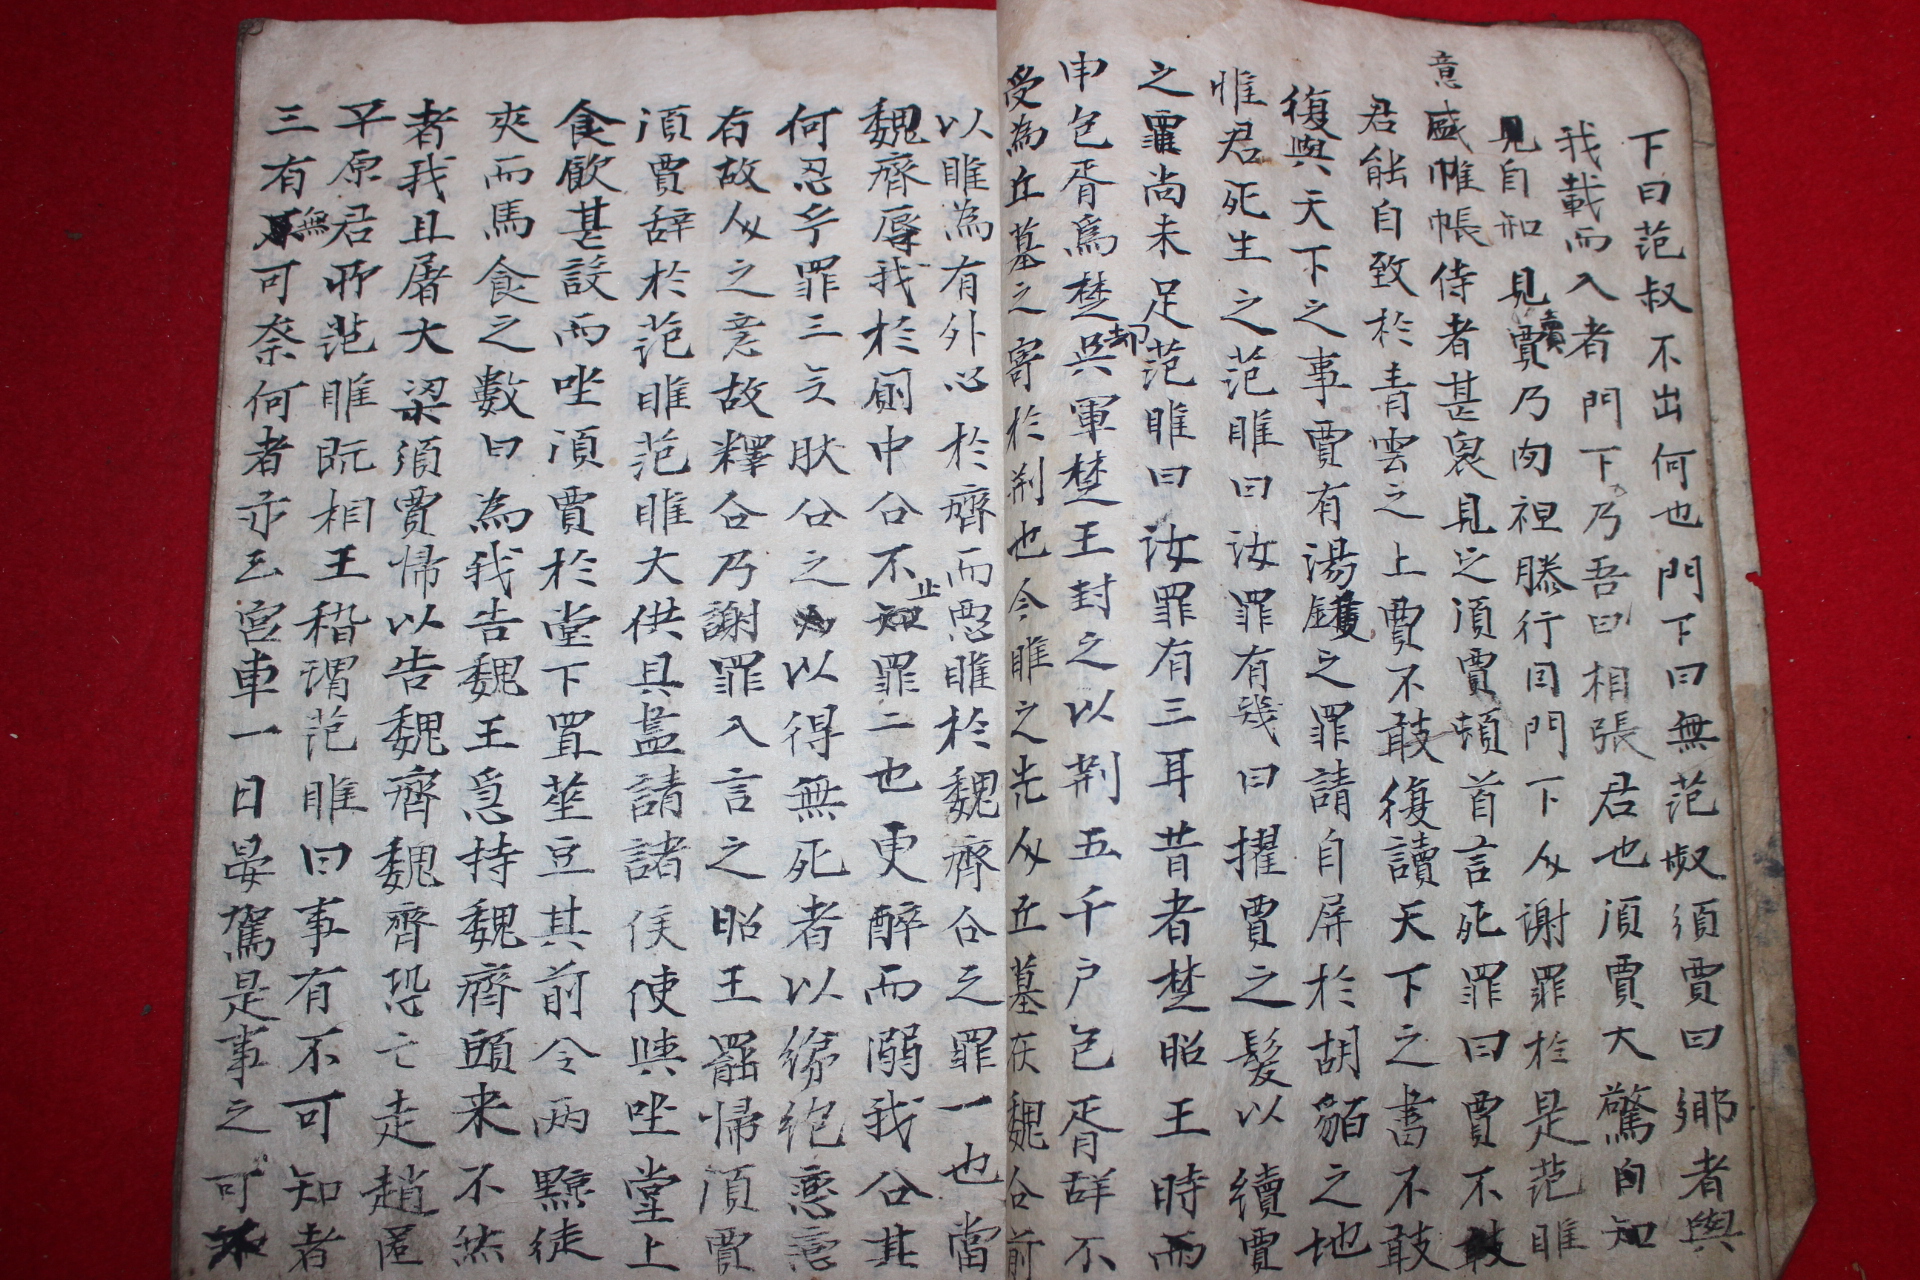 下曰范叔不出何也門下曰無范叔須賈曰鄉者與
我載而入者門下乃吾曰相張君也須賈大驚自知
見自知見賣賈乃肉袒膝行因門下人謝罪於是范睢
意盛帷帳侍者甚衆見之須賈頓首言死罪曰賈不敢
君能自致於青雲之上賈不敢復讀天下之書不敢
復與天下之事賈有湯鑊之罪請自屏於胡貊之地
惟君死生之范睢曰汝罪有幾曰擢賈之髮以續賈
之罪尚未足范睢曰汝罪有三耳昔者楚昭王時而
申包胥爲楚却吳軍楚王封之以荆五千户包胥辭不
受為丘墓之寄於荆也今睢之先人丘墓在魏公前
以睢為有外心於齊而惡睢於魏齊公之罪一也當
魏齊辱我於厠中公不止罪二也更醉而溺我公其
何忍乎罪三矣肰公之以得無死者以綈袍戀意
有故人之意故釋公乃謝罪入言之昭王罷歸須賈
須賈辭於范睢范睢大供具盡請諸侯使與坐堂上
食飲甚設而坐須賈於堂下置莝豆其前令兩黥徒
夾而馬食之數曰為我告魏王急持魏齊頭来不然
者我且屠大梁須賈歸以告魏齊魏齊恐亡走趙匿
平原君所范睢既相王稽謂范睢曰事有不可知者
三有無可奈何者亦三宮車一日晏駕是事之可不